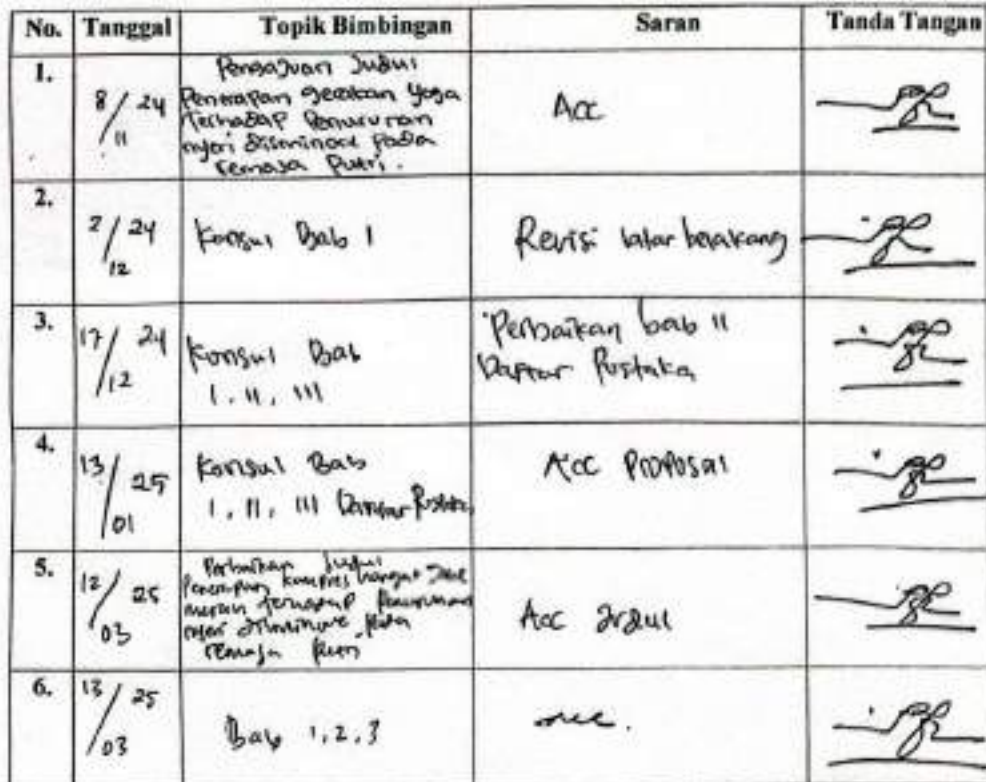 No. Tanggal Topik Bimbingan Saran Tanda Tangan
1. 8/11 24 Pengajuan Judul Acc
Penerapan gerakan Yoga
Terhadap Penurunan
nyeri disminore pada
remaja Putri.
2. 2/12 24 Konsul Bab 1 Revisi latar belakang
3. 17/12 24 Konsul Bab Perbaikan bab II
I, II, III Daftar Pustaka
4. 13/01 25 Konsul Bab Acc Proposal
I, II, III Daftar Pustaka
5. 12/03 25 Perbaikan Judul Acc Judul
Penerapan kompres hangat Jahe
merah terhadap Penurunan
nyeri disminore pada
remaja Putri
6. 13/03 25 Bab 1,2,3